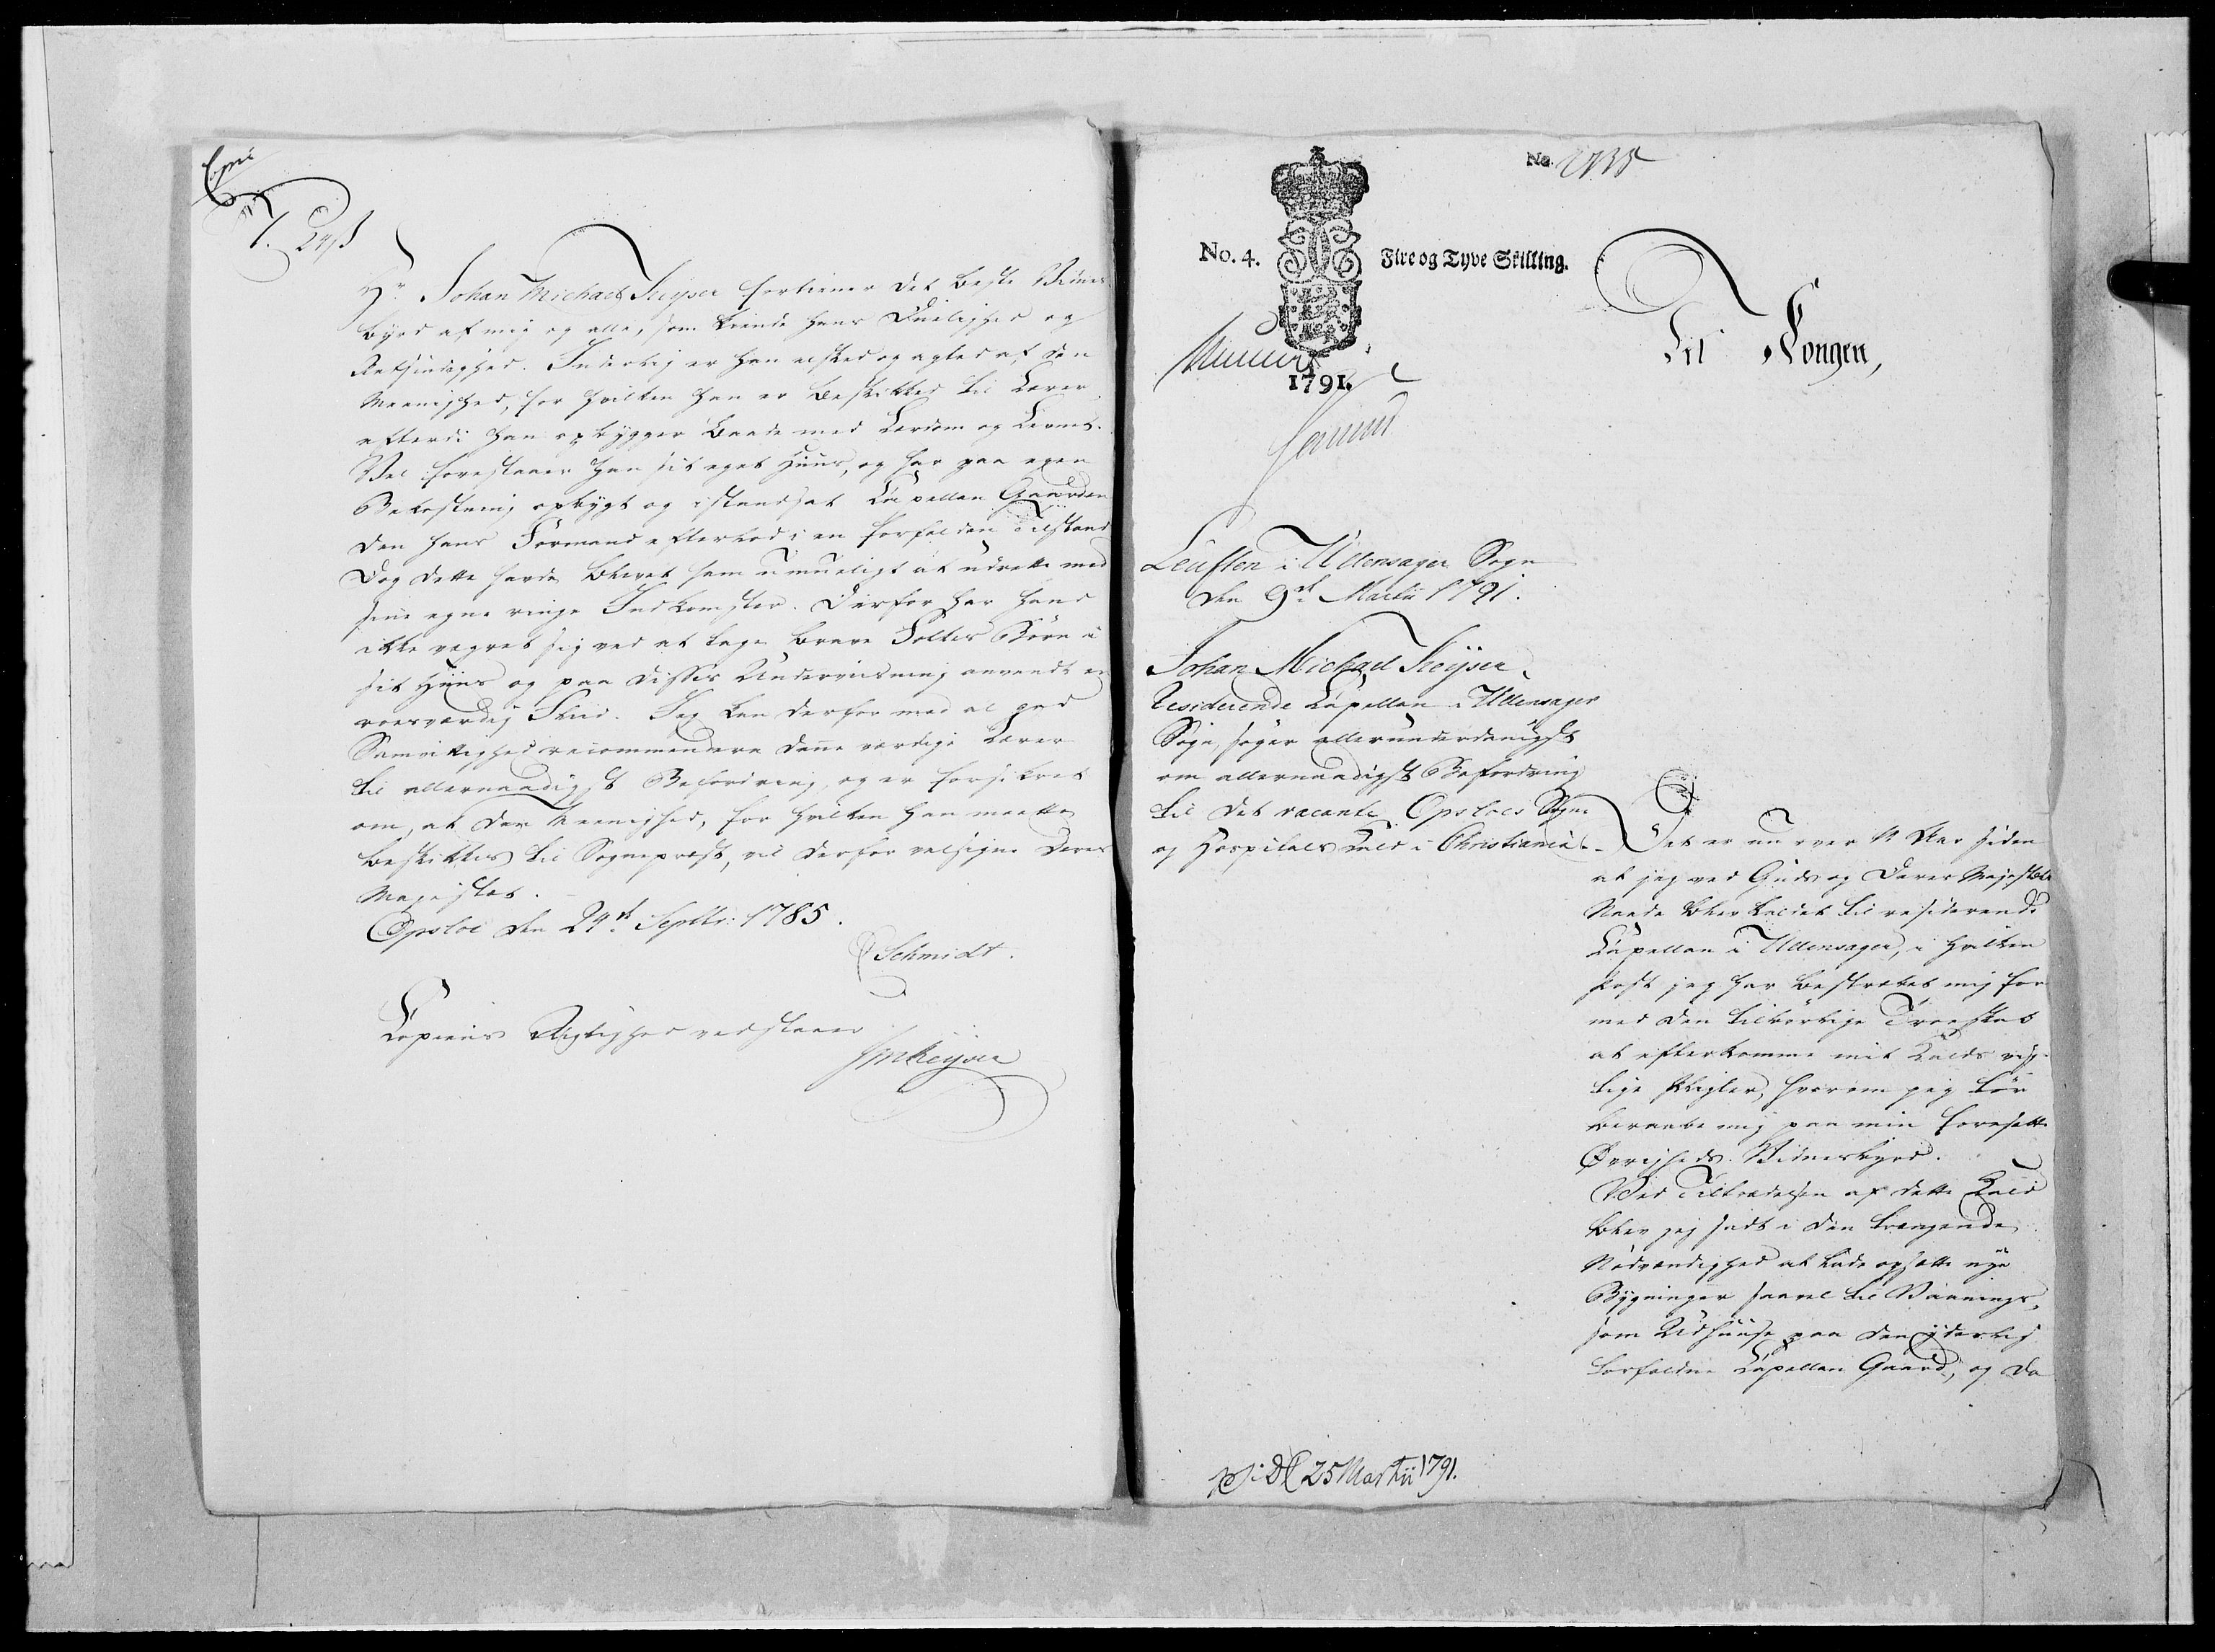 Copie
24 ß
Hr. Johan Michael Keyser fortiener det beste Vidnes-
byrd af mig og alle, som kiende hans Duelighed og
Retsindighed. Inderlig er han elsket og agted af den
Meenighed, for hvilken han er beskikket til Lærer,
efterdi han opbygger baade med Lærdom og Levnet.
Vel forestaaer han sit eget Huus, og har paa egen
Bekostning opbygt og istandsat Capellan Gaarden
den hans Formand efterlod i en forfalden Tilstand
Dog dette havde blevet ham umueligt at udrette med
sine egne ringe Indkomster. Derfor har hand
ikke vegret sig ved at tage brave Folkes Børn i
sit Huus og paa disses Underviisning anvendt en
roesværdig Fliid. Jeg kan derfor med al god
Samvittighed recommendere denne værdige Lærer
til allernaadigst Befordring, og er forsikret
om, at den Meenighed, for hvilken han maatte
beskikkes til Sognepræst, vil derfor velsigne Deres
Majestæt.
Opsloe den 24de Septbr: 1785.
Schmidt.
Copiens Rigtighed vedstaaer
JMKeyser
No.
No. 4.
Fire og Tyve Skilling.
1791.
Til Kongen,
Leuften i Ullensager Sogn
den 9de Martii 1791.
Johan Michael Keyser,
Residerende Capellan i Ullensager
Sogn, søger allerunderdanigst
om allernaadigst Befordring
til det vacante Opsloes Sogne
og Hospitals Kald i Christiania.
Det er nu over 11 Aar siden
at jeg ved Guds og Deres Majestæts
Naade blev kaldet til residerende
Capellan i Ullensager, i hvilken
Post jeg har bestræbet mig for
med den tilbørlige Troeskab
at efterkomme mit Kalds vig-
tige Pligter, hvorom jeg tør
beraabe mig paa min foresatte
Øvrigheds Vidnesbyrd.
Ved Tiltrædelsen af dette Kald
blev jeg sadt i den trængende
Nødvendighed at lade opsætte nye
Bygninger saavel til Vaanings,
som Udhuuse paa den yderlig
forfaldne Capellan Gaard, og da
25 Martii 1791.